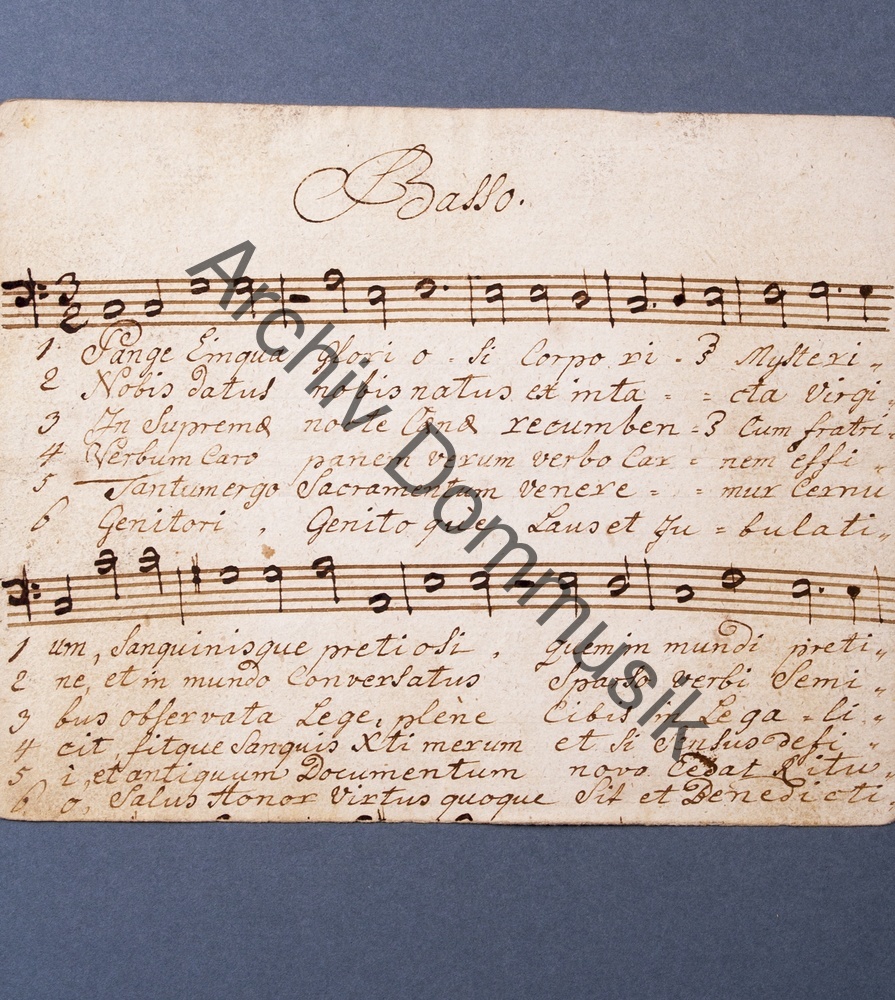 Basso.
3
2
1 Pange Lingua glori o - si Corpo ri - 3 Mysteri „
2 Nobis datus nobis natus ex inta - - cta Virgi „
3 In Supremæ nocte Cænæ recumben - 3 Cum fratri „
4 Verbum Caro panem verum verbo Car - nem effi „
5 Tantumergo Sacramentum venere - - mur Cernu
6 Genitori , Genito què Laus et Ju - bulati „
1 um, Sanquinisque pretiosi , quem in mundi preti „
2 ne, et in mundo Conversatus Sparso verbi Semi „
3 bus observata Lege, plène Cibis in Lega - li „
4 cit, fitque Sanquis Xti merum et Si Sensus defi „
5 i, et antiquum Documentum novo Cedat Ritu „
6 o, Salus Honor Virtus quoque Sit et Benedicti
Archiv Dommusik